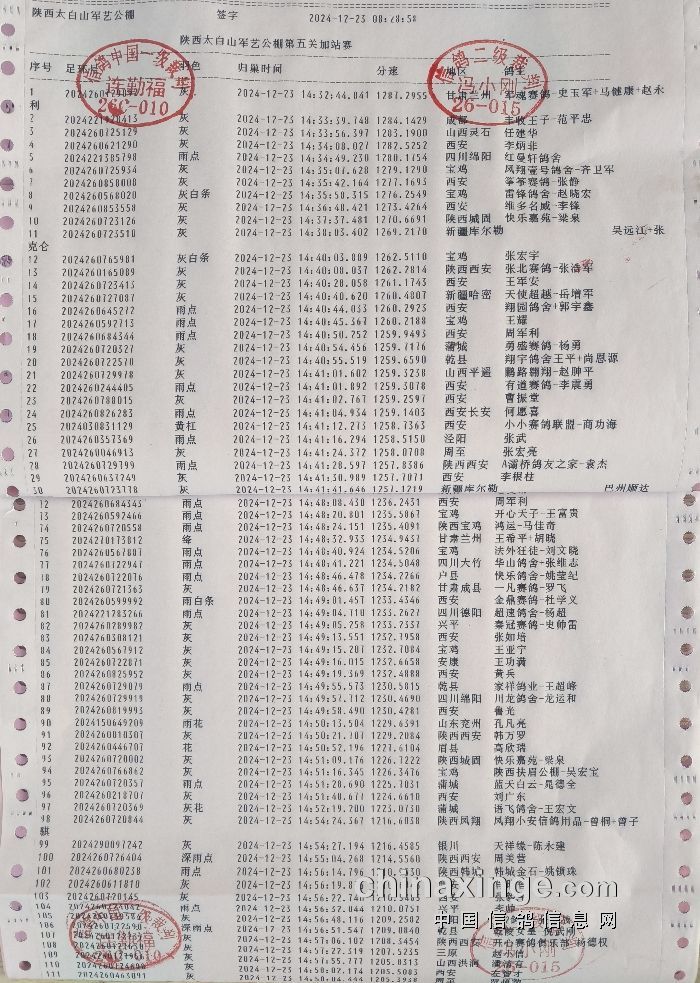 陕西太白山军艺公棚 签字 2024-12-23 08:28:58
陕西太白山军艺公棚第五关加站赛
序号 足环 羽色 归巢时间 分速 地区 鸽主
信鸽中国一级裁判 连勤福 26C-010
信鸽二级裁判 冯小刚 26-015
1 灰 2024-12-23 14:32:44.041 1287.2955 甘肃兰州 军魂赛鸽-史玉军+马健康+赵永
利
2 灰 2024-12-23 14:33:39.748 1284.1429 成都 丰收王子-范平忠
3 2024260725129 灰 2024-12-23 14:33:56.397 1283.1900 山西灵石 任建华
4 2024260621290 灰 2024-12-23 14:34:08.027 1282.5252 西安 李炳非
5 2024221385798 雨点 2024-12-23 14:34:49.230 1280.1754 四川绵阳 红曼轩鸽舍
6 2024260725934 灰 2024-12-23 14:35:07.628 1279.1290 宝鸡 凤翔壹号鸽舍-齐卫军
7 2024260858008 灰 2024-12-23 14:35:42.164 1277.1693 西安 筝筝赛鸽-张静
8 2024260568020 灰白条 2024-12-23 14:35:58.315 1276.2549 宝鸡 雷锋鸽舍-赵晓宏
9 2024260853558 灰 2024-12-23 14:36:48.421 1273.4264 西安 维多名威-李锋
10 2024260723126 灰 2024-12-23 14:37:37.481 1270.6691 陕西城固 快乐嘉苑-梁泉
11 2024260723510 灰 2024-12-23 14:38:03.402 1269.2170 新疆库尔勒 吴远江+张
克仑
12 2024260765981 灰白条 2024-12-23 14:40:03.889 1262.5110 宝鸡 张宏宇
13 2024260165089 灰 2024-12-23 14:40:08.037 1262.2814 陕西西安 张北赛鸽-张浩军
14 2024260723413 灰 2024-12-23 14:40:28.058 1261.1743 西安 王军安
15 2024260727087 灰 2024-12-23 14:40:40.620 1260.4807 新疆哈密 天使超越-岳增军
16 2024260645272 雨点 2024-12-23 14:40:44.033 1260.2923 西安 翔园鸽舍+郭宇鑫
17 2024260592713 雨点 2024-12-23 14:40:45.367 1260.2188 宝鸡 王耀
18 2024260684344 雨点 2024-12-23 14:40:50.752 1259.9493 西安 周军利
19 2024260720327 灰 2024-12-23 14:40:54.456 1259.7176 蒲城 勇盛赛鸽-杨勇
20 2024260722570 灰 2024-12-23 14:40:55.519 1259.6590 乾县 翔宇鸽舍王平+尚恩源
21 2024260729978 灰 2024-12-23 14:41:01.602 1259.3238 山西平遥 鹏路翱翔-赵肿平
22 2024260244405 雨点 2024-12-23 14:41:01.892 1259.3078 西安 有道赛鸽-李震勇
23 2024260788015 灰 2024-12-23 14:41:02.767 1259.2597 西安 曹振堂
24 2024260826283 雨点 2024-12-23 14:41:04.934 1259.1403 西安长安 何愿喜
25 2024030831129 黄杠 2024-12-23 14:41:12.273 1258.7363 西安 小小赛鸽联盟-商功海
26 2024260357369 雨点 2024-12-23 14:41:16.294 1258.5150 泾阳 张武
27 2024260046913 灰 2024-12-23 14:41:24.372 1258.0708 周至 张宏亮
28 2024260729799 雨点 2024-12-23 14:41:28.597 1257.8386 陕西西安 A灞桥鸽友之家-袁杰
29 2024260637249 灰 2024-12-23 14:41:30.989 1257.7071 西安 李根柱
30 2024260773778 灰 2024-12-23 14:41:41.646 1257.1219 新疆库尔勒 巴州顺达
72 2024260684343 雨点 2024-12-23 14:48:08.430 1236.2431 西安 周军利
73 2024260592466 雨点 2024-12-23 14:48:20.801 1235.5867 宝鸡 开心天子-王富贵
74 2024260720558 雨点 2024-12-23 14:48:24.151 1235.4091 陕西宝鸡 鸿运-马佳奇
75 2024270173812 绛 2024-12-23 14:48:32.933 1234.9437 甘肃兰州 王希平+胡晓
76 2024260567807 雨点 2024-12-23 14:48:40.924 1234.5206 宝鸡 法外狂徒-刘文晓
77 2024260722947 雨点 2024-12-23 14:48:41.221 1234.5048 四川大竹 华山鸽舍+张维志
78 2024260722076 雨点 2024-12-23 14:48:46.478 1234.2266 户县 快乐鸽舍-姚莹纪
79 2024260721363 灰 2024-12-23 14:48:46.637 1234.2182 甘肃成县 一凡赛鸽-罗飞
80 2024260599992 雨白条 2024-12-23 14:49:01.457 1233.4346 西安 金鼎赛鸽-杜学义
81 2024221783266 雨点 2024-12-23 14:49:04.710 1233.2627 四川德阳 超速鸽舍-杨超
82 2024260289982 灰 2024-12-23 14:49:05.258 1233.2337 兴平 秦冠赛鸽-史帅雷
83 2024260308121 灰 2024-12-23 14:49:13.551 1232.7958 西安 张如培
84 2024260567912 灰 2024-12-23 14:49:15.207 1232.7084 宝鸡 王亚宁
85 2024260722871 灰 2024-12-23 14:49:16.015 1232.6658 安康 王功满
86 2024260825952 灰 2024-12-23 14:49:19.369 1232.4888 西安 黄兵
87 2024260729079 雨点 2024-12-23 14:49:55.573 1230.5815 乾县 家祥鸽业-王超峰
88 2024260729919 灰 2024-12-23 14:49:57.712 1230.4690 四川绵阳 川龙鸽舍-龙运和
89 2024260819993 灰 2024-12-23 14:49:58.490 1230.4281 西安 鲁光
90 2024150649209 雨花 2024-12-23 14:50:13.504 1229.6391 山东兖州 孔凡亮
91 2024260010307 灰 2024-12-23 14:50:21.707 1229.2084 陕西西安 韩万罗
92 2024260446707 花 2024-12-23 14:50:52.196 1227.6104 眉县 高欣瑞
93 2024260720002 灰 2024-12-23 14:51:09.176 1226.7222 陕西城固 快乐嘉苑-梁泉
94 2024260766862 灰 2024-12-23 14:51:16.345 1226.3476 宝鸡 陕西扶眉公棚-吴宏宝
95 2024260720357 雨点 2024-12-23 14:51:28.690 1225.7031 蒲城 蓝天白云-晁德全
96 2024260218707 灰 2024-12-23 14:51:48.671 1224.6610 西安 刘广东
97 2024260720369 灰花 2024-12-23 14:52:19.200 1223.0730 蒲城 语飞鸽舍-王宏文
98 2024260720844 灰 2024-12-23 14:54:24.367 1216.6038 陕西凤翔 凤翔小安信鸽用品-曾桐+曾子
骐
99 2024290097242 灰 2024-12-23 14:54:27.194 1216.4585 银川 天祥缘-陈永建
100 2024260726404 深雨点 2024-12-23 14:55:04.268 1214.5560 陕西西安 周美营
101 2024260680238 雨点 2024-12-23 14:56:14.796 陕西韩城 韩城金石-姚锁珠
102 2024260611810 灰 2024-12-23 14:56:19.8
103 2024260720145 灰 2024-12-23 14:56:22.740
104 雨点 2024-12-23 14:56:37.044 1210.0751 兴平
105 灰 2024-12-23 14:56:48.116 1209.2502
106 深雨点 2024-12-23 14:56:51.547 1209.0840
107 灰 2024-12-23 14:57:06.102 1208.3454 陕西西安 开心赛鸽俱乐部-杨德权
108 灰 2024-12-23 14:57:22.319 1207.5235 三原
109 灰 2024-12-23 14:57:55.177 1205.8313 山西洪洞
110 灰 2024-12-23 14:58:02.174 1205.5083 西安
111 2024260463091 灰
chinaxinge.com
中国信鸽信息网